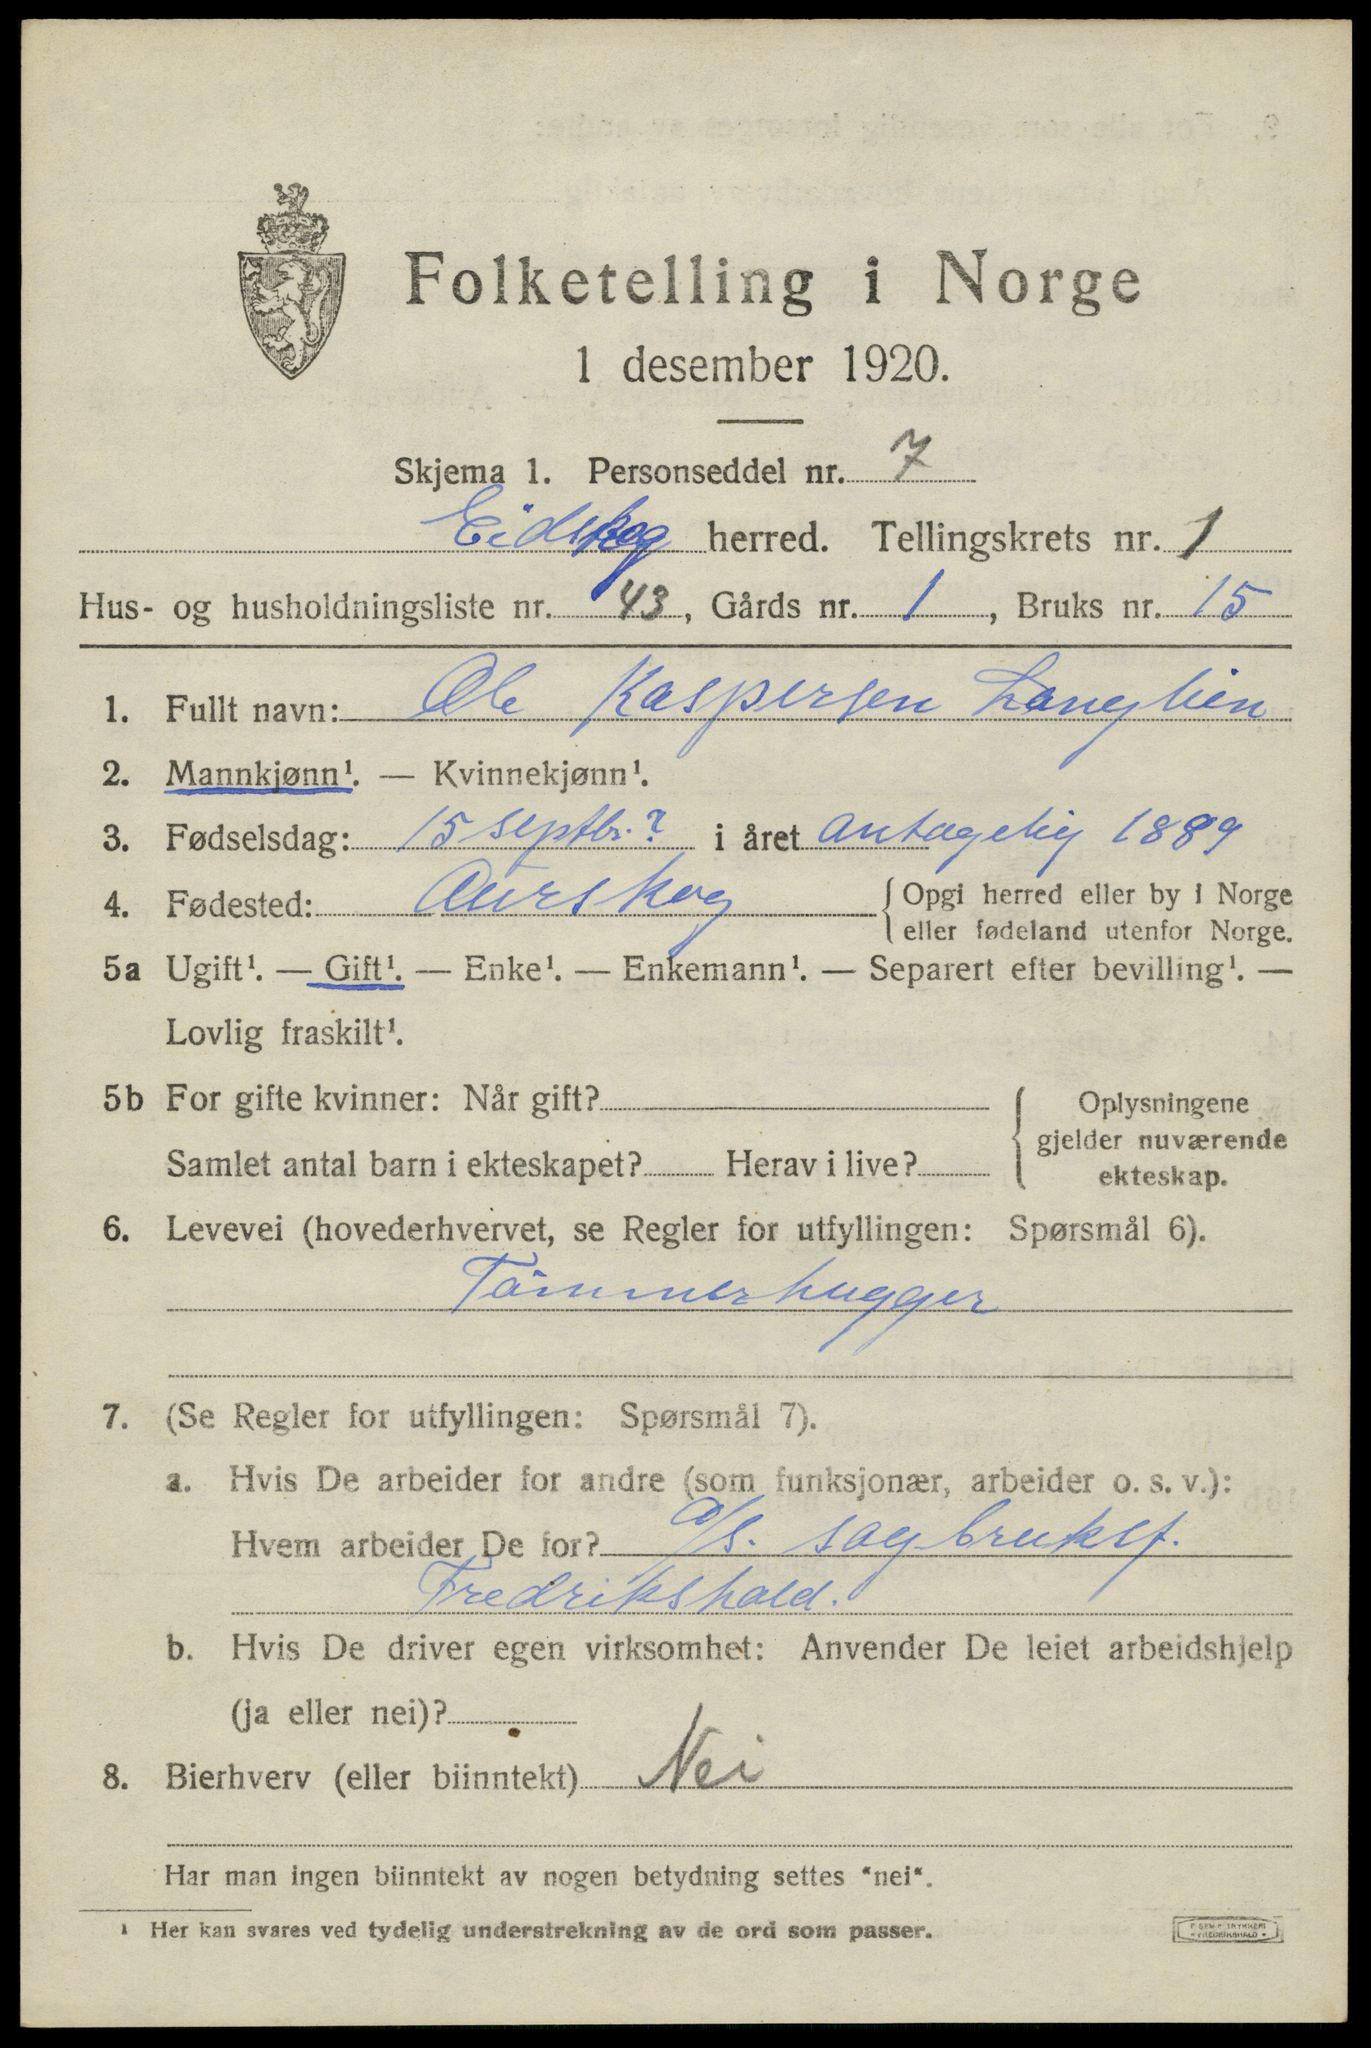 Folketelling i Norge
1 desember 1920.
Skjema 1. Personseddel nr. 7
Eidskog herred. Tellingskrets nr. 1
Hus- og husholdningsliste nr. 43, Gårds nr. 1, Bruks nr. 15
1. Fullt navn: Ole Kaspersen Langlien
2. Mannkjønn¹. — Kvinnekjønn¹.
3. Fødselsdag: 15 septbr.? i året antagelig 1889
4. Fødested: Aurskog {Opgi herred eller by i Norge
eller fødeland utenfor Norge.
5a Ugift¹. — Gift¹. — Enke¹. — Enkemann¹. — Separert efter bevilling¹. —
Lovlig fraskilt¹.
5b For gifte kvinner: Når gift?
Samlet antal barn i ekteskapet? Herav i live?
Oplysningene
gjelder nuværende
ekteskap.
6. Levevei (hovederhvervet, se Regler for utfyllingen: Spørsmål 6).
Tömmerhugger
7. (Se Regler for utfyllingen: Spørsmål 7).
a. Hvis De arbeider for andre (som funksjonær, arbeider o. s. v.):
Hvem arbeider De for? A/S. sagbruksf.
Fredrikshald.
b. Hvis De driver egen virksomhet: Anvender De leiet arbeidshjelp
(ja eller nei)?
8. Bierhverv (eller biinntekt) Nei
Har man ingen biinntekt av nogen betydning settes "nei".
¹ Her kan svares ved tydelig understrekning av de ord som passer.